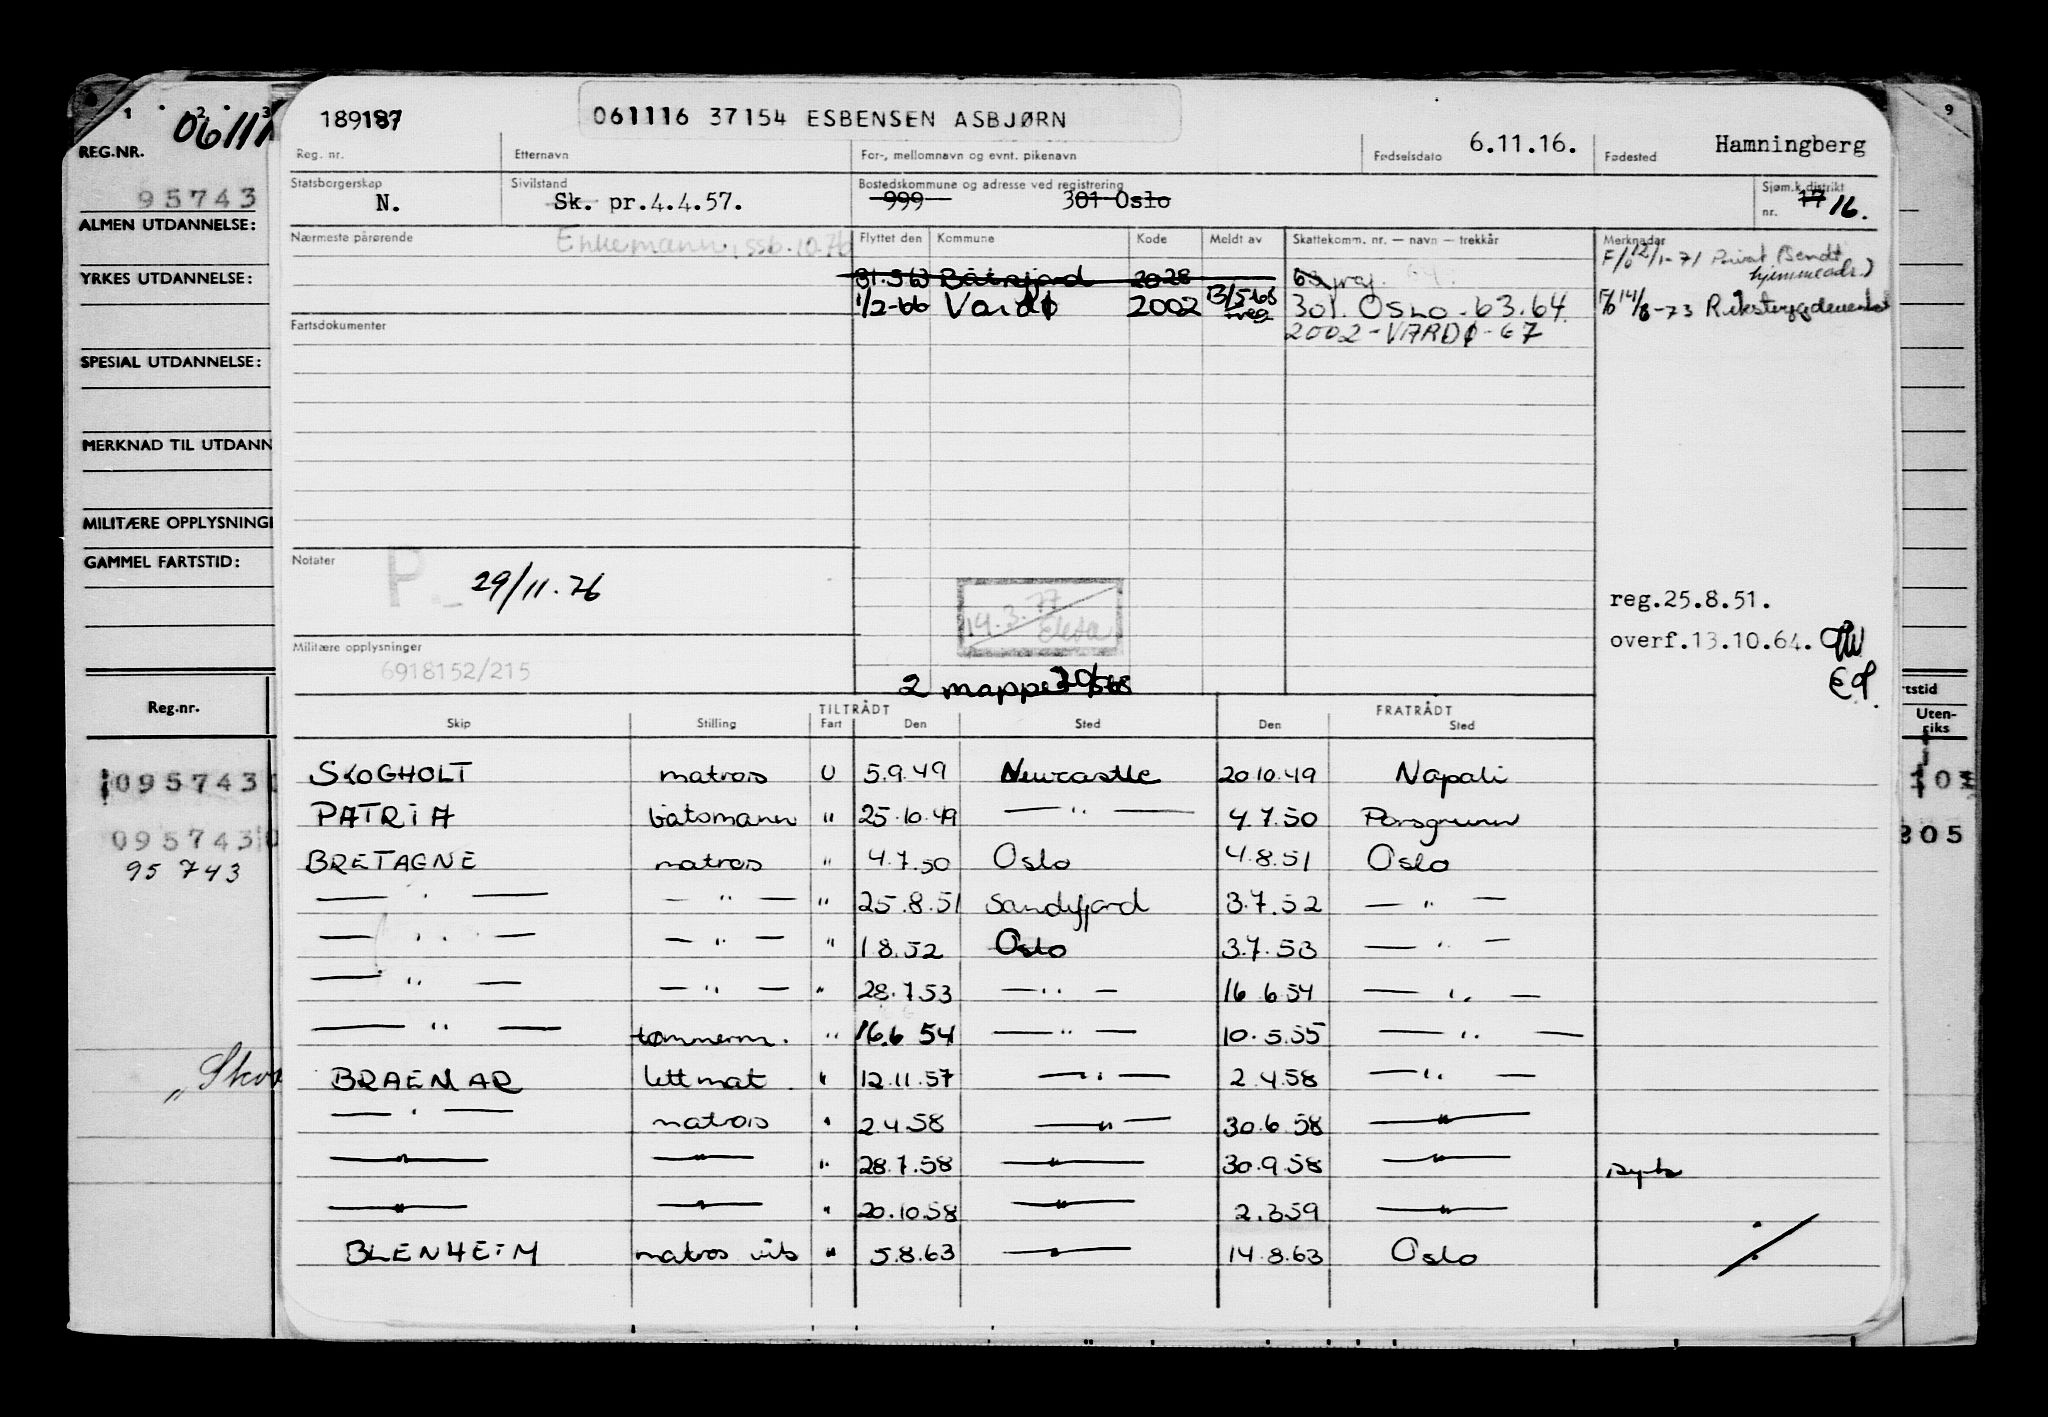 1 2 3
06111
REG.NR.
95743
ALMEN UTDANNELSE:
YRKES UTDANNELSE:
SPESIAL UTDANNELSE:
MERKNAD TIL UTDANN
MILITÆRE OPPLYSNING
GAMMEL FARTSTID:
Reg.nr.
0957430
0957430
95 743
"Sko
189187 061116 37154 ESBENSEN ASBJØRN 6.11.16. Hamningberg
Reg. nr. Etternavn For-, mellomnavn og evnt. pikenavn Fødselsdato Fødested
Statsborgerskap Sivilstand Bostedskommune og adresse ved registrering Sjøm.k.distrikt
N. Sk. pr.4.4.57. 999 301 Oslo nr. 17 16.
Nærmeste pårørende Enkemann, ssb. 10.76 Flyttet den Kommune Kode Meldt av Skattekomm. nr. — navn — trekkår Merknader
F/b 12/1-71 Privat (Sendt hjemmeadr.)
31.5.63 Båtsfjord 2028
1/2-66 Vardø 2002 301. OSLO. 63.64 F/b 14/8-73 Rikstrygdeverket
Fartsdokumenter 2002-VARDØ-67
Notater P. 29/11.76
14.3.77
reg.25.8.51.
overf.13.10.64.
Militære opplysninger
6918152/215
2 mapper
TILTRÅDT FRATRÅDT
Skip Stilling Fart Den Sted Den Sted
SKOGHOLT matros U 5.9.49 Newcastle 20.10.49 Napoli
PATRIA båtsmann " 25.10.49 — " — 4.7.50 Porsgrunn
BRETAGNE matros " 4.7.50 Oslo 4.8.51 Oslo
— " — — " — " 25.8.51 Sandefjord 3.7.52 — " —
— " — — " — " 1.8.52 Oslo 3.7.53 — " —
— " — — " — " 28.7.53 — " — 16.6.54 — " —
— " — tømmerm. " 16.6.54 — " — 10.5.55 — " —
BRAEMAR lettmat. " 12.11.57 — " — 2.4.58 — " —
— " — matros " 2.4.58 — " — 30.6.58 — " —
— " — — " — " 28.7.58 — " — 30.9.58 — " — syk
— " — — " — " 20.10.58 — " — 2.3.59 — " —
BLENHEIM matros vik " 5.8.63 — " — 14.8.63 Oslo
9
rtstid
Uten-
riks
103
305